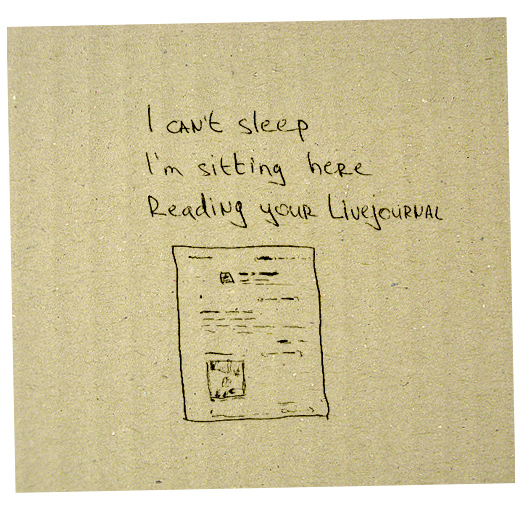 I can't sleep
I'm sitting here
Reading your Livejournal